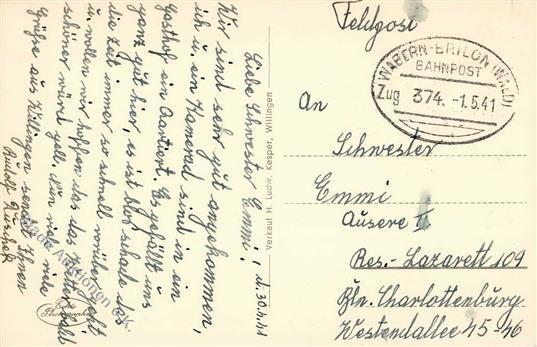 d. 30.4.41
Liebe Schwester Emmi!
Wir sind sehr gut angekommen,
ich u. ein Kamerad sind in ein
Gasthof ein Quartiert. Es gefällt uns
ganz gut hier, es ist blos schade das
die Zeit immer so schnell vorüber geht
u. wollen wir hoffen das das Wetter bald
schöner wird gell. Nun viele liebe
Grüße aus Willingen sendet Ihnen
Rudolf
Verkauf H. Ludw. Kesper, Willingen
Echte
Photographie
Feldpost
WABERN-BRILON (WALD)
BAHNPOST
Zug 374. -1.5.41
An
Schwester
Emmi
Ausere II
Res.-Lazarett 109
Bln. Charlottenburg
Westendallee 45-46